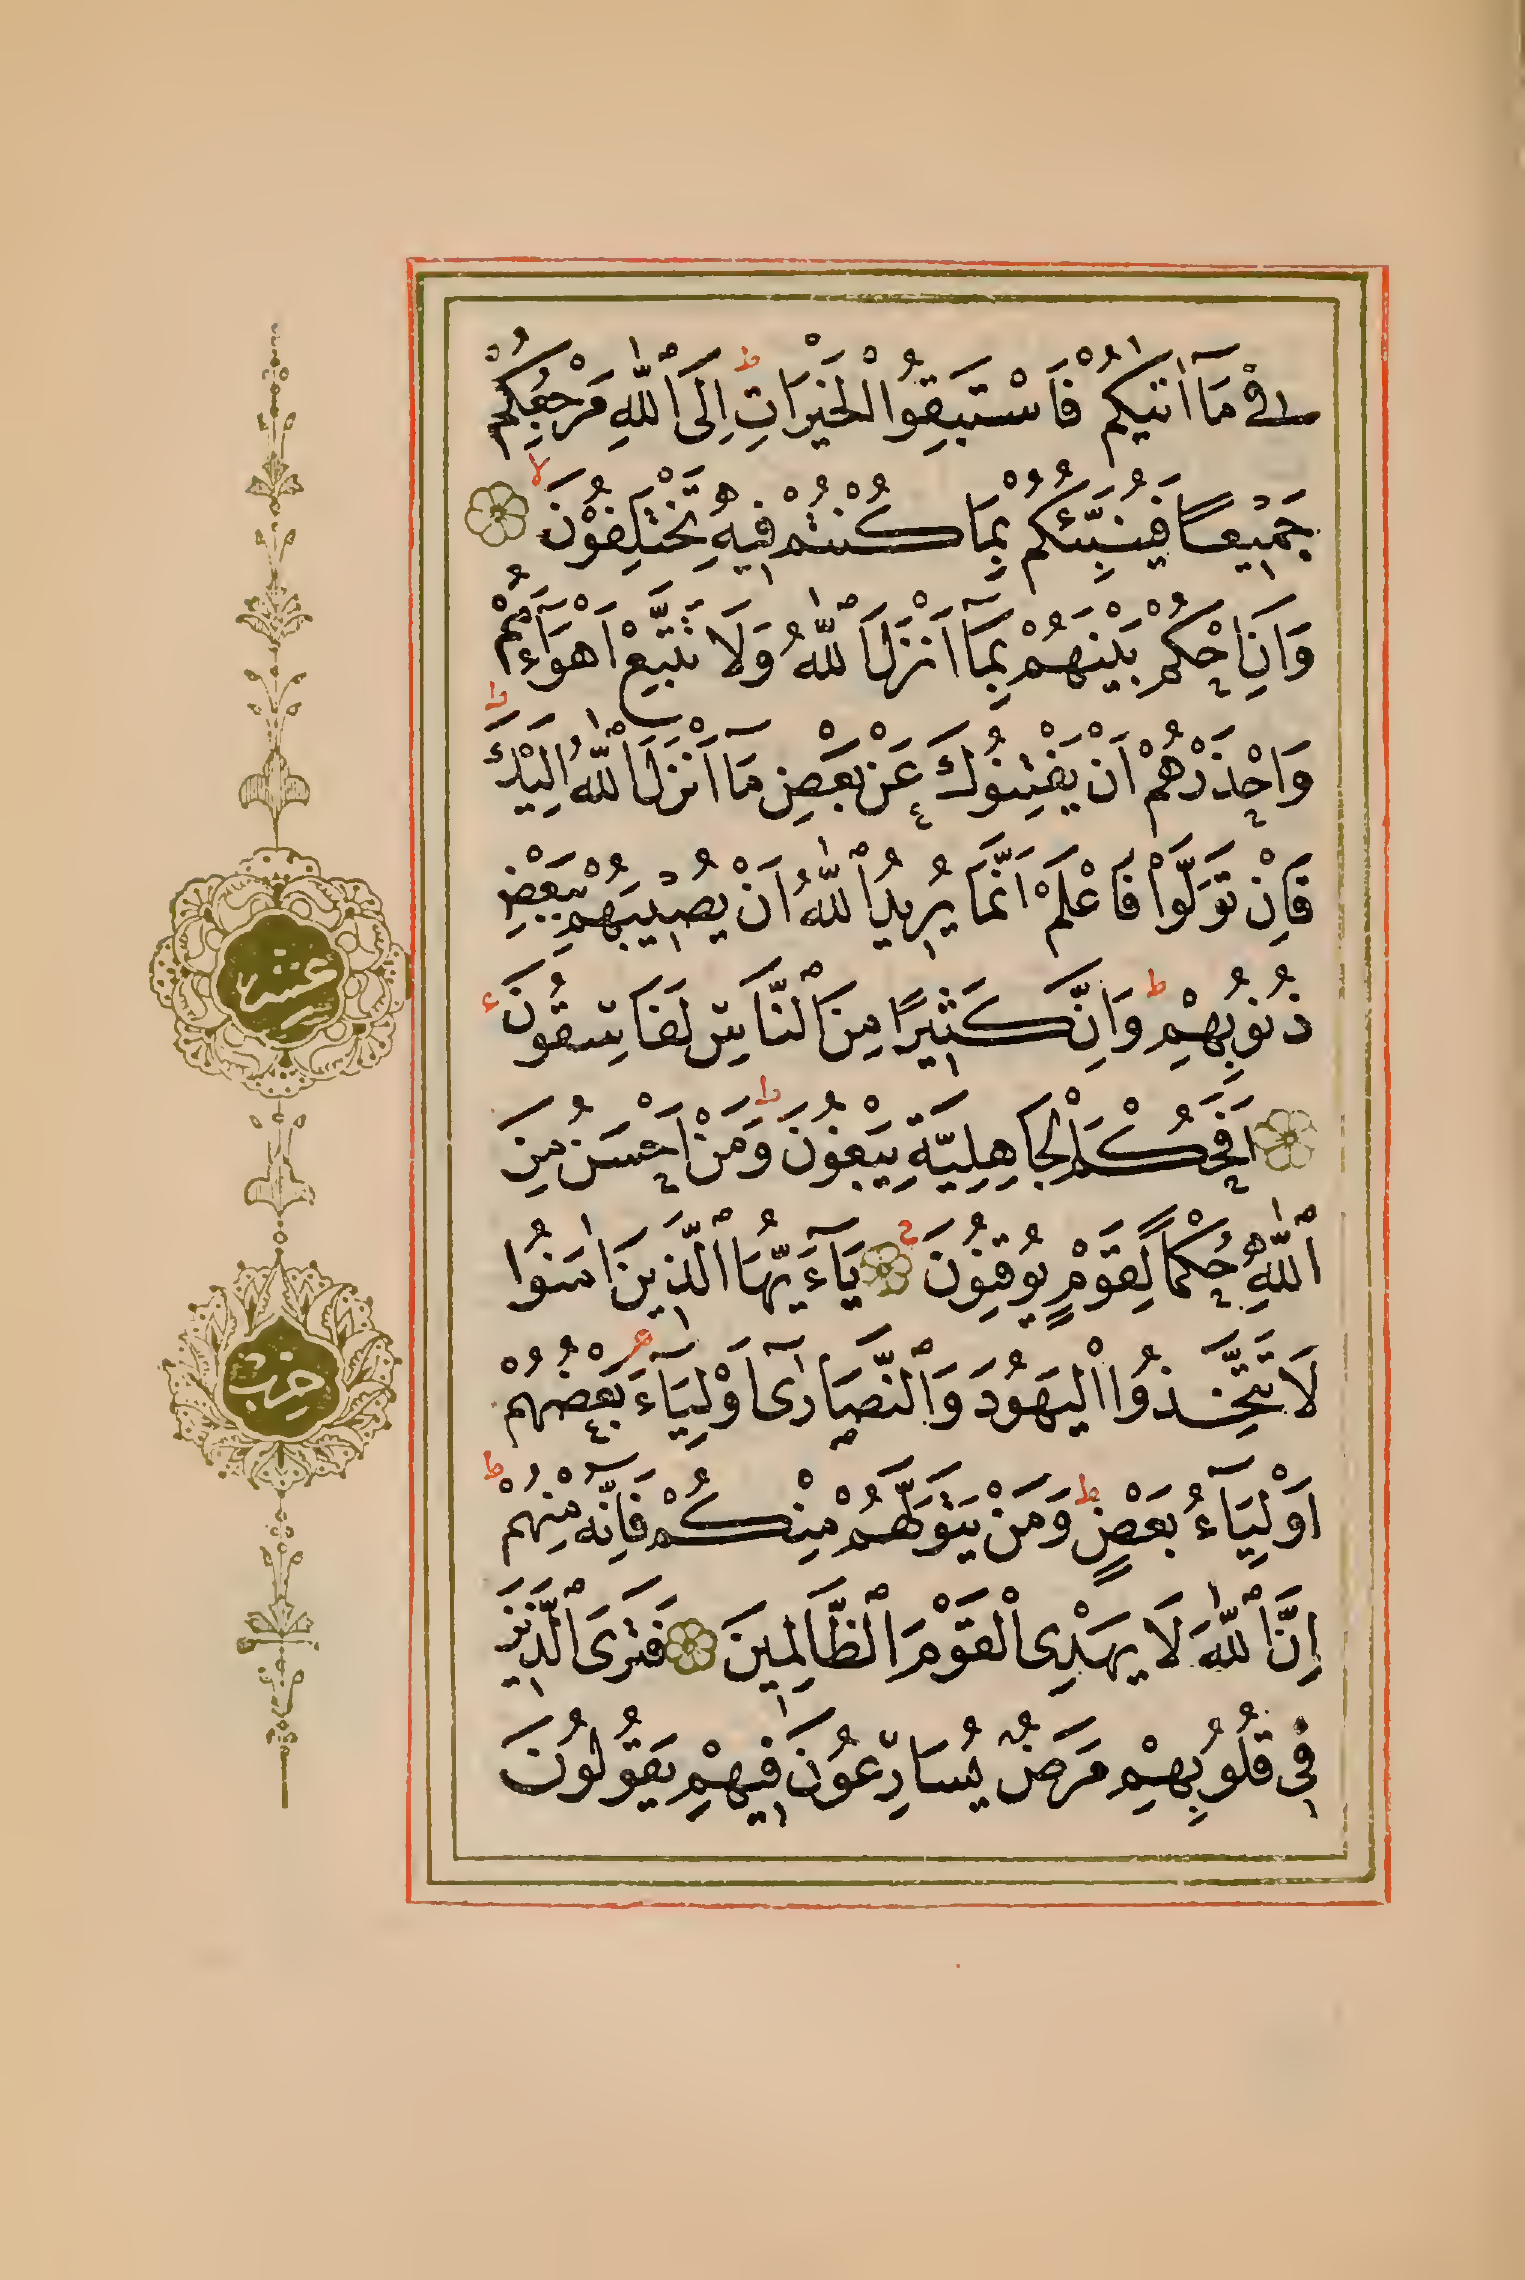 فِى مَآ اٰتٰيكُمْ فَاسْتَبِقُوا الْخَيْرَاتِ ط اِلَى اللّٰهِ مَرْجِعُكُمْ
جَمِيْعًا فَيُنَبِّئُكُمْ بِمَا كُنْتُمْ فِيهِ تَخْتَلِفُوْنَ لا
وَاَنِ احْكُمْ بَيْنَهُمْ بِمَآ اَنْزَلَ اللّٰهُ وَلَا تَتَّبِعْ اَهْوَآءَهُمْ
وَاحْذَرْهُمْ اَنْ يَفْتِنُوكَ عَنْ بَعْضِ مَآ اَنْزَلَ اللّٰهُ اِلَيْكَ ط
فَاِنْ تَوَلَّوْا فَاعْلَمْ اَنَّمَا يُرِيدُ اللّٰهُ اَنْ يُصِيْبَهُمْ بِبَعْضِ
ذُنُوبِهِمْ ط وَاِنَّ كَثِيرًا مِنَ النَّاسِ لَفَاسِقُونَ
اَفَحُكْمَ الْجَاهِلِيَّةِ يَبْغُونَ ط وَمَنْ اَحْسَنُ مِنَ
اللّٰهِ حُكْمًا لِقَوْمٍ يُوقِنُونَ يَآءَيُّهَا الَّذِينَ اٰمَنُوا
لَا تَتَّخِذُوا الْيَهُودَ وَالنَّصَارٰٓى اَوْلِيَآءَ بَعْضُهُمْ
اَوْلِيَآءُ بَعْضٍ ط وَمَنْ يَتَوَلَّهُمْ مِنْكُمْ فَاِنَّهُ مِنْهُمْ ط
اِنَّ اللّٰهَ لَا يَهْدِى الْقَوْمَ الظَّالِمِينَ فَتَرَى الَّذِينَ
فِى قُلُوبِهِمْ مَرَضٌ يُسَارِعُونَ فِيهِمْ يَقُولُونَ
عشر
حزب